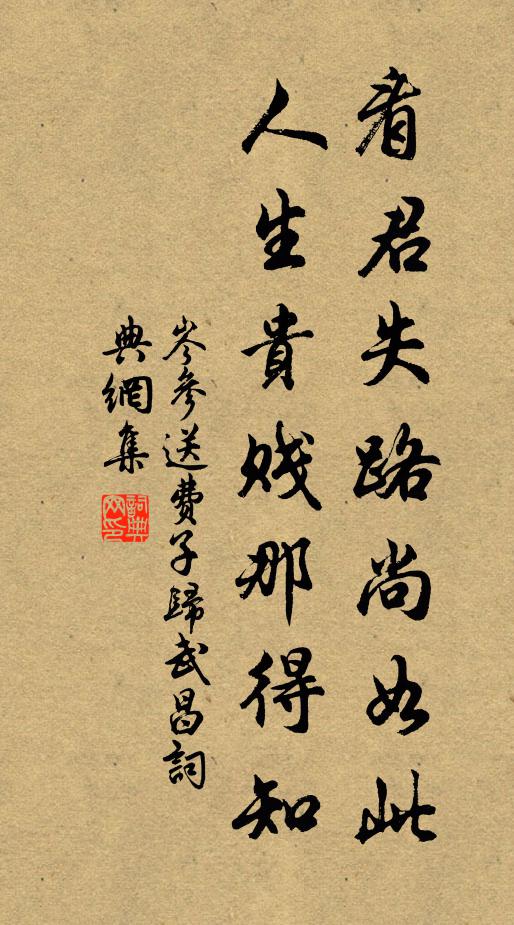 看君失路尚如此
人生貴賤那得知
岑參送費子歸武昌詞
典網集
詞典
网印